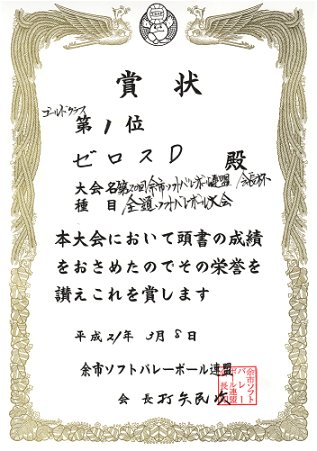 賞状
ゴールドクラス
第1位
ゼロスD 殿
大会名 第20回余市ソフトバレーボール連盟会長杯
種目 全道ソフトバレーボール大会
本大会において頭書の成績
をおさめたのでその栄誉を
讃えこれを賞します
平成21年3月8日
余市ソフトバレーボール連盟
会長
余市ソフトバレーボール連盟